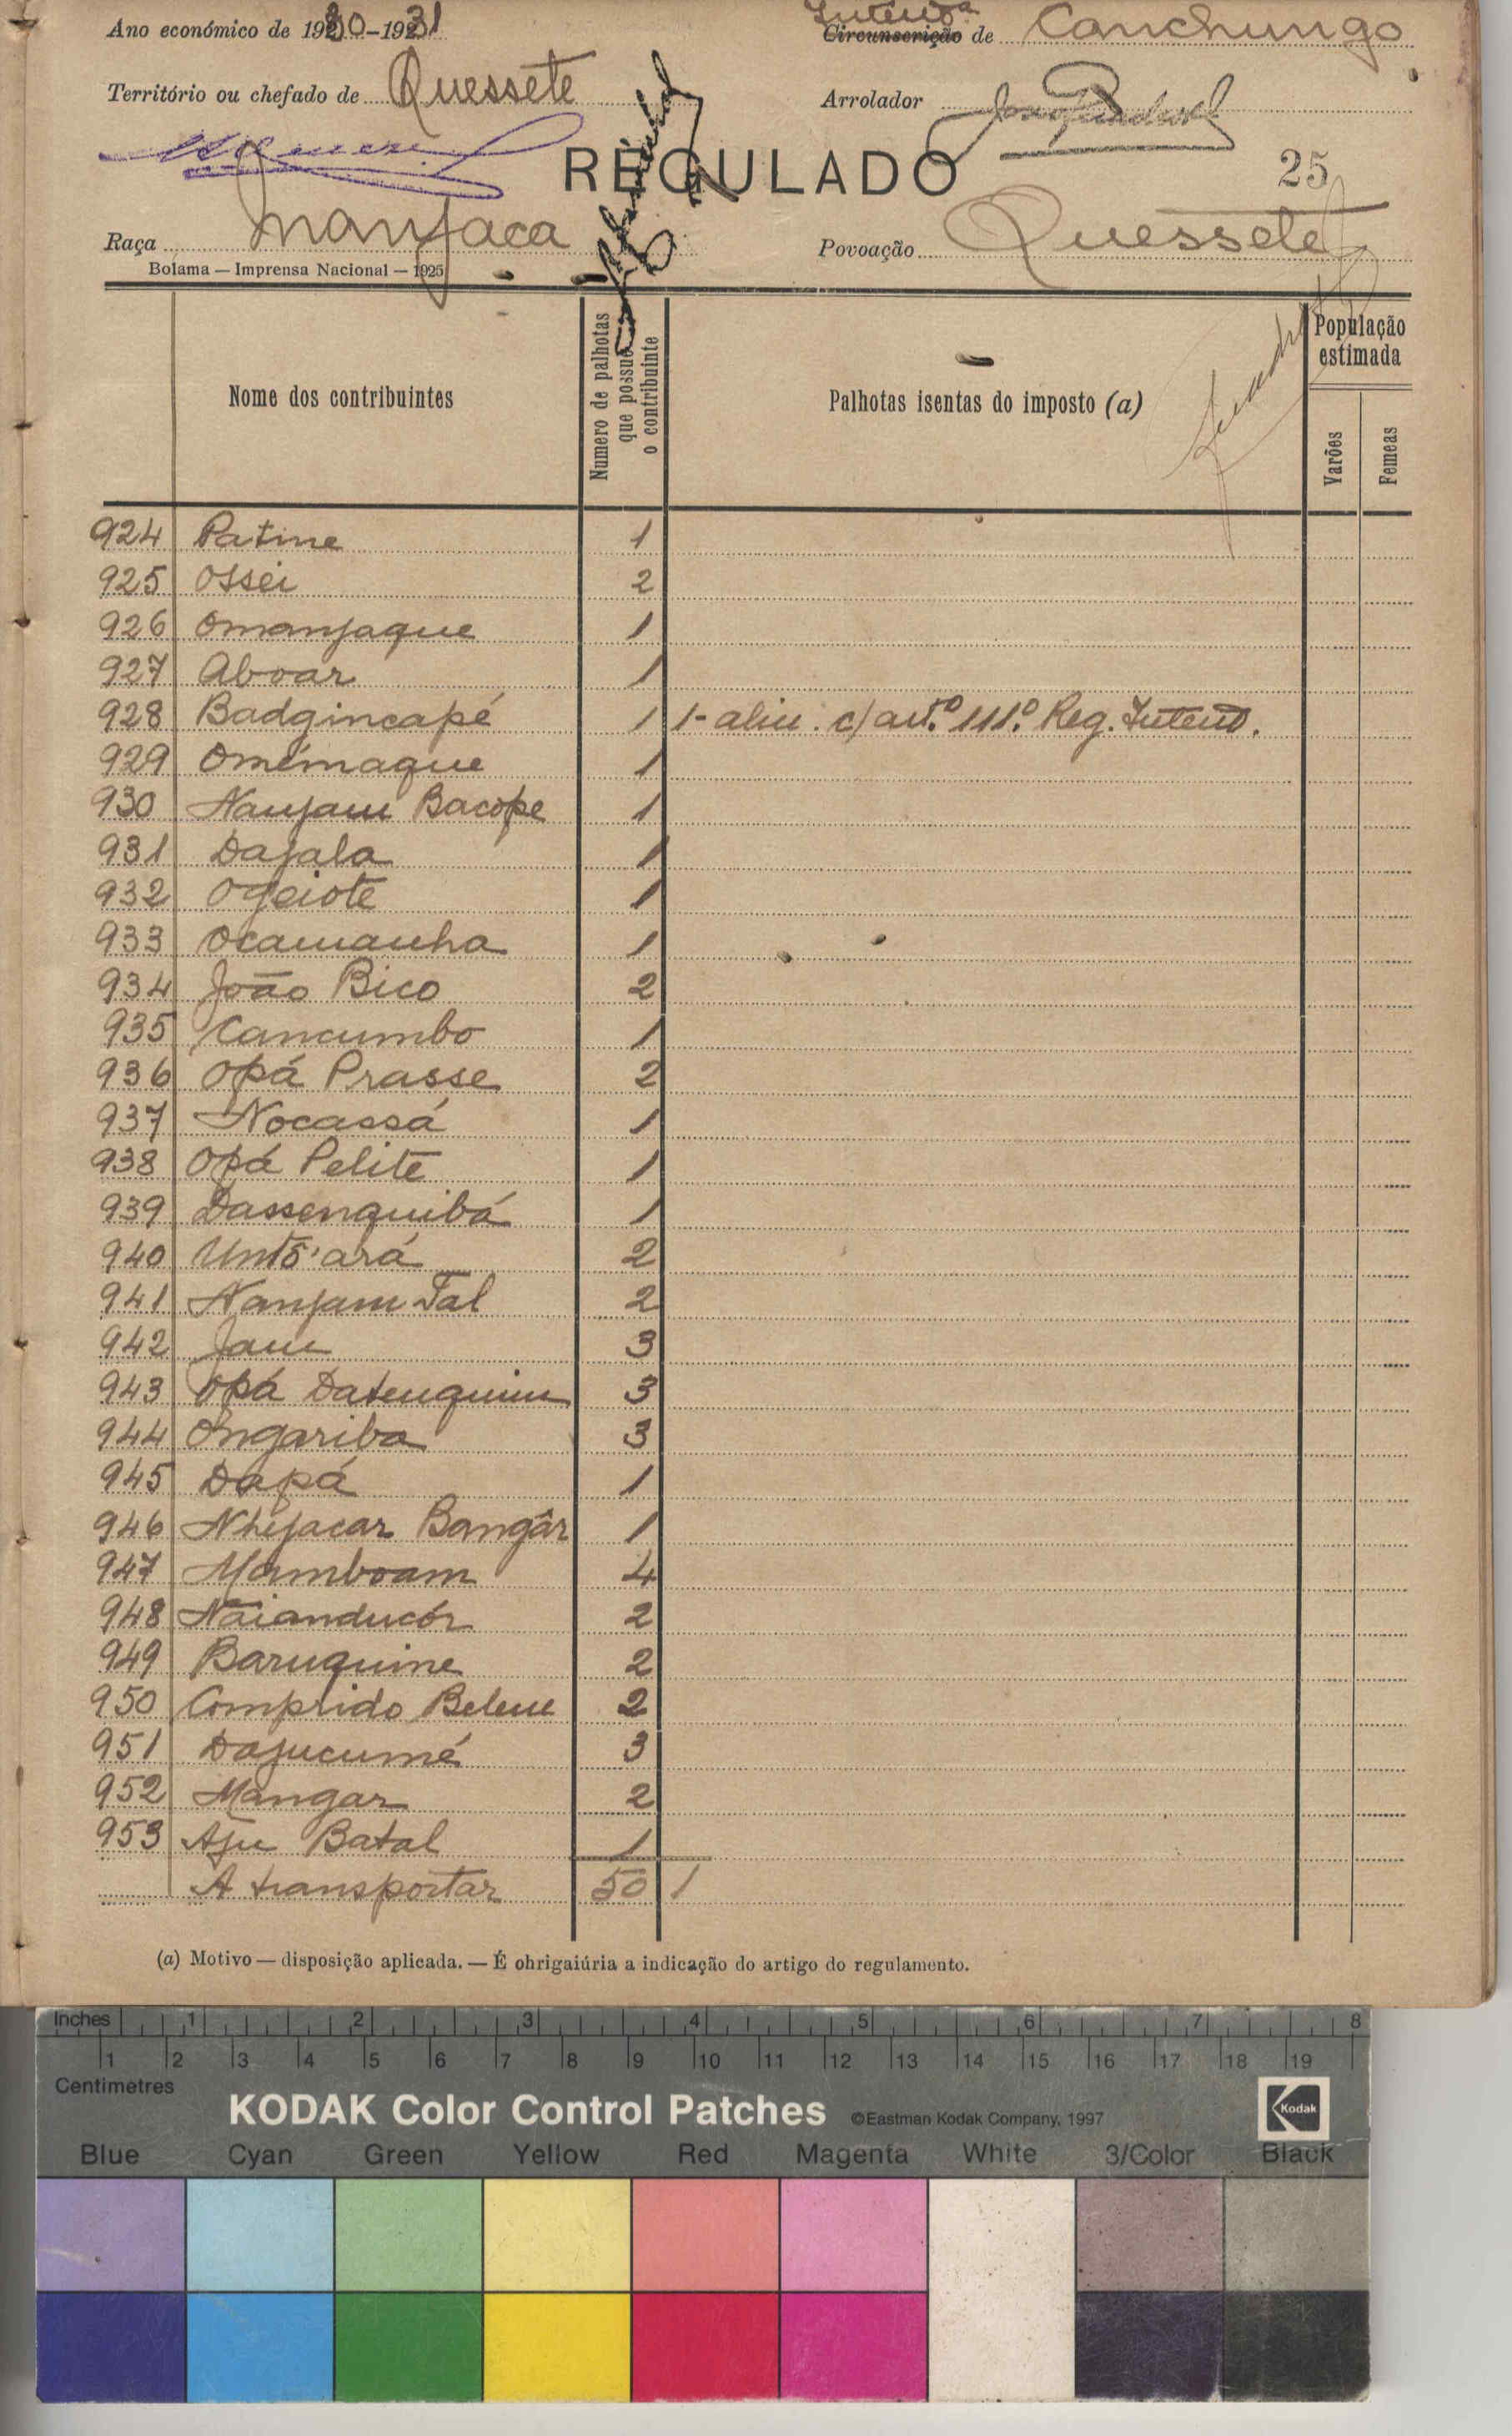 Ano económico de 1930-1931
Intend.ª
Circunscrição de Canchungo
Território ou chefado de Quessete
Arrolador
REGULADO
25
Raça Manjaca
Povoação Quessete
Bolama — Imprensa Nacional — 1925
Nome dos contribuintes
Numero de palhotas que possue o contribuinte
Palhotas isentas do imposto (a)
População estimada
Varões
Femeas
924 Patine 1
925 Ossei 2
926 Omanjaque 1
927 Aboar 1
928 Badgincapé 1 1-alin. c/ art.º 111.º Reg. Intend.
929 Omémaque 1
930 Nanjam Bacope 1
931 Dajala 1
932 Ogeiote 1
933 Ocamanha 1
934 João Bico 2
935 Cancumbo 1
936 Opá Prasse 2
937 Nocassá 1
938 Opá Pelite 1
939 Dassenquibá 1
940 Untó'ará 2
941 Nanjam Tal 2
942 Jam 3
943 Opá Datenquim 3
944 Ongariba 3
945 Dapá 1
946 Nhejacar Bangâr 1
947 Mamboam 4
948 Naianducór 2
949 Baruquine 2
950 Comprido Belem 2
951 Dajucumé 3
952 Mangar 2
953 Aju Batal 1
A transportar 50 1
(a) Motivo — disposição aplicada. — É ohrigaiúria a indicação do artigo do regulamento.
Inches 1 2 3 4 5 6 7 8
1 2 3 4 5 6 7 8 9 10 11 12 13 14 15 16 17 18 19
Centimetres
KODAK Color Control Patches ©Eastman Kodak Company, 1997 Kodak
Blue Cyan Green Yellow Red Magenta White 3/Color Black